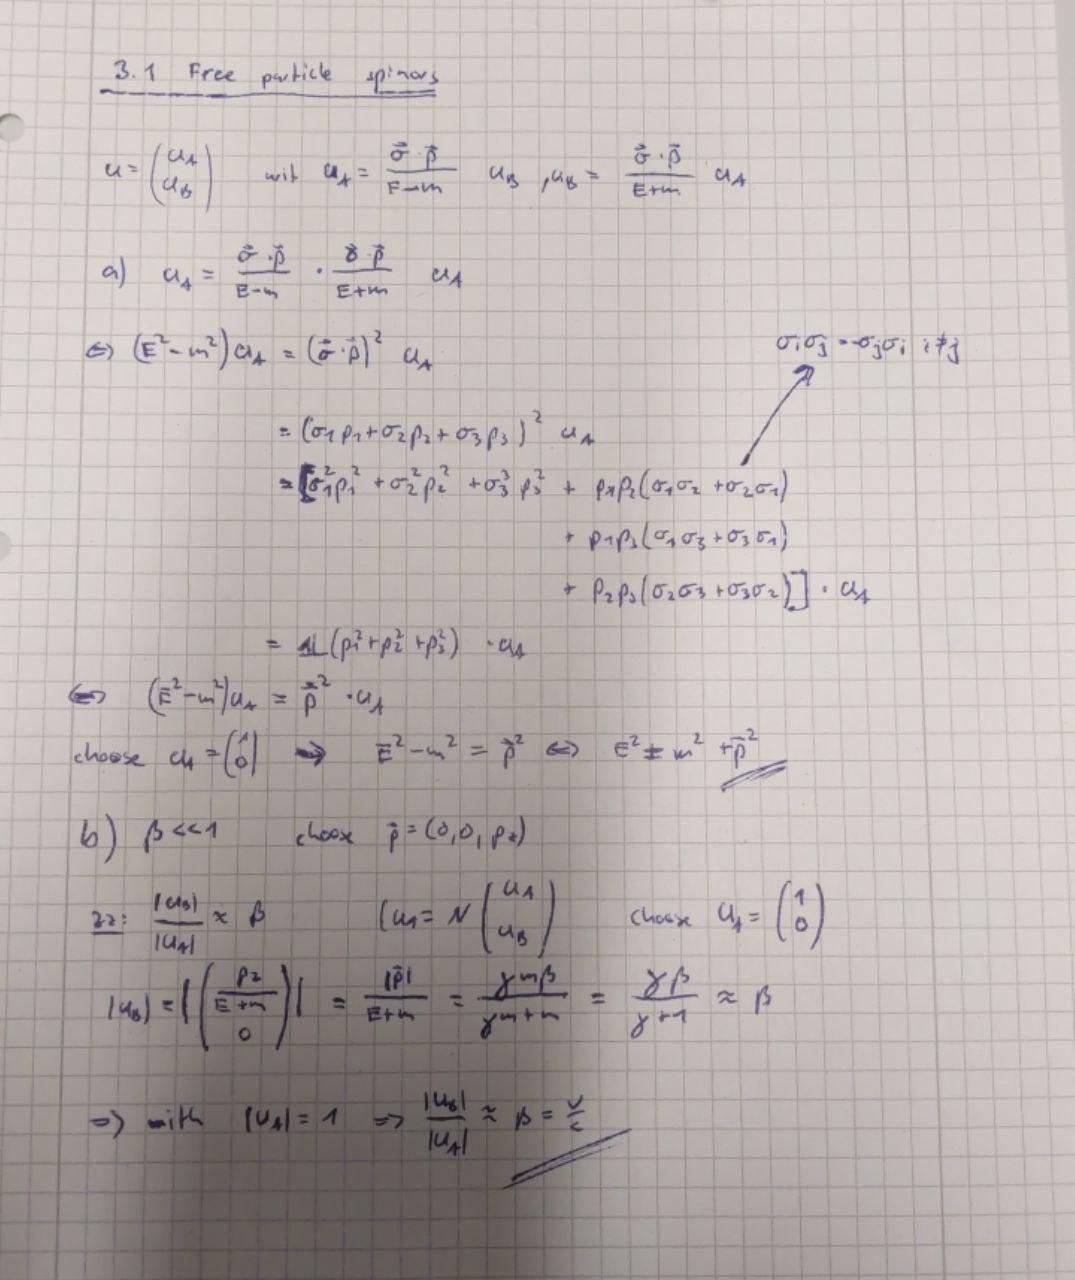 3.1 Free particle spinors
u = (u_A u_B) mit u_A = σ⃗·p⃗ / E-m u_B , u_B = σ⃗·p⃗ / E+m u_A
a) u_A = σ⃗·p⃗ / E-m · σ⃗·p⃗ / E+m u_A
⇔ (E² - m²) u_A = (σ⃗·p⃗)² u_A
σiσj = -σjσi i≠j
= (σ1p1 + σ2p2 + σ3p3)² u_A
= [σ1²p1² + σ2²p2² + σ3³p3² + p1p2(σ1σ2 + σ2σ1)
+ p1p3(σ1σ3 + σ3σ1)
+ p2p3(σ2σ3 + σ3σ2)] · u_A
= 1L(p1² + p2² + p3²) · u_A
⇔ (E² - m²) u_A = p⃗² · u_A
choose u_A = (1 0) → E² - m² = p⃗² ⇔ E² = m² + p⃗²
b) β << 1 choose p⃗ = (0, 0, pz)
zz: |u_B| / |u_A| ≈ β (u1 = N (u_A u_B) choose u_A = (1 0)
|u_B| = |(pz / E+m 0)| = |p⃗| / E+m = γmβ / γm+m = γβ / γ+1 ≈ β
⇒ with |u_A| = 1 ⇒ |u_B| / |u_A| ≈ β = v/c